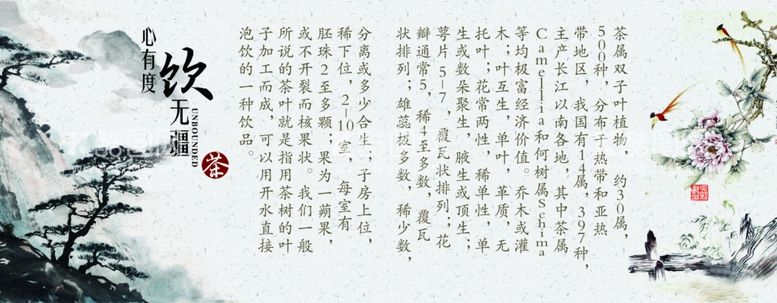 茶属双子叶植物，约30属，
500种，分布于热带和亚热
带地区，我国有14属，397种，
主产长江以南各地，其中茶属
Camellia和何树属Schima
等均极富经济价值。乔木或灌
木；叶互生，单叶，革质，无
托叶；花常两性，稀单性，单
生或数朵聚生，腋生或顶生；
萼片5-7，覆瓦状排列；花
瓣通常5，稀4至多数，覆瓦
状排列；雄蕊极多数，稀少数，
分离或多少合生；子房上位，
稀下位，2-10室，每室有
胚珠2至多颗；果为一蒴果，
或不开裂而核果状。我们一般
所说的茶叶就是指用茶树的叶
子加工而成，可以用开水直接
泡饮的一种饮品。
心有度
饮无疆
UNBOUNDED
茶